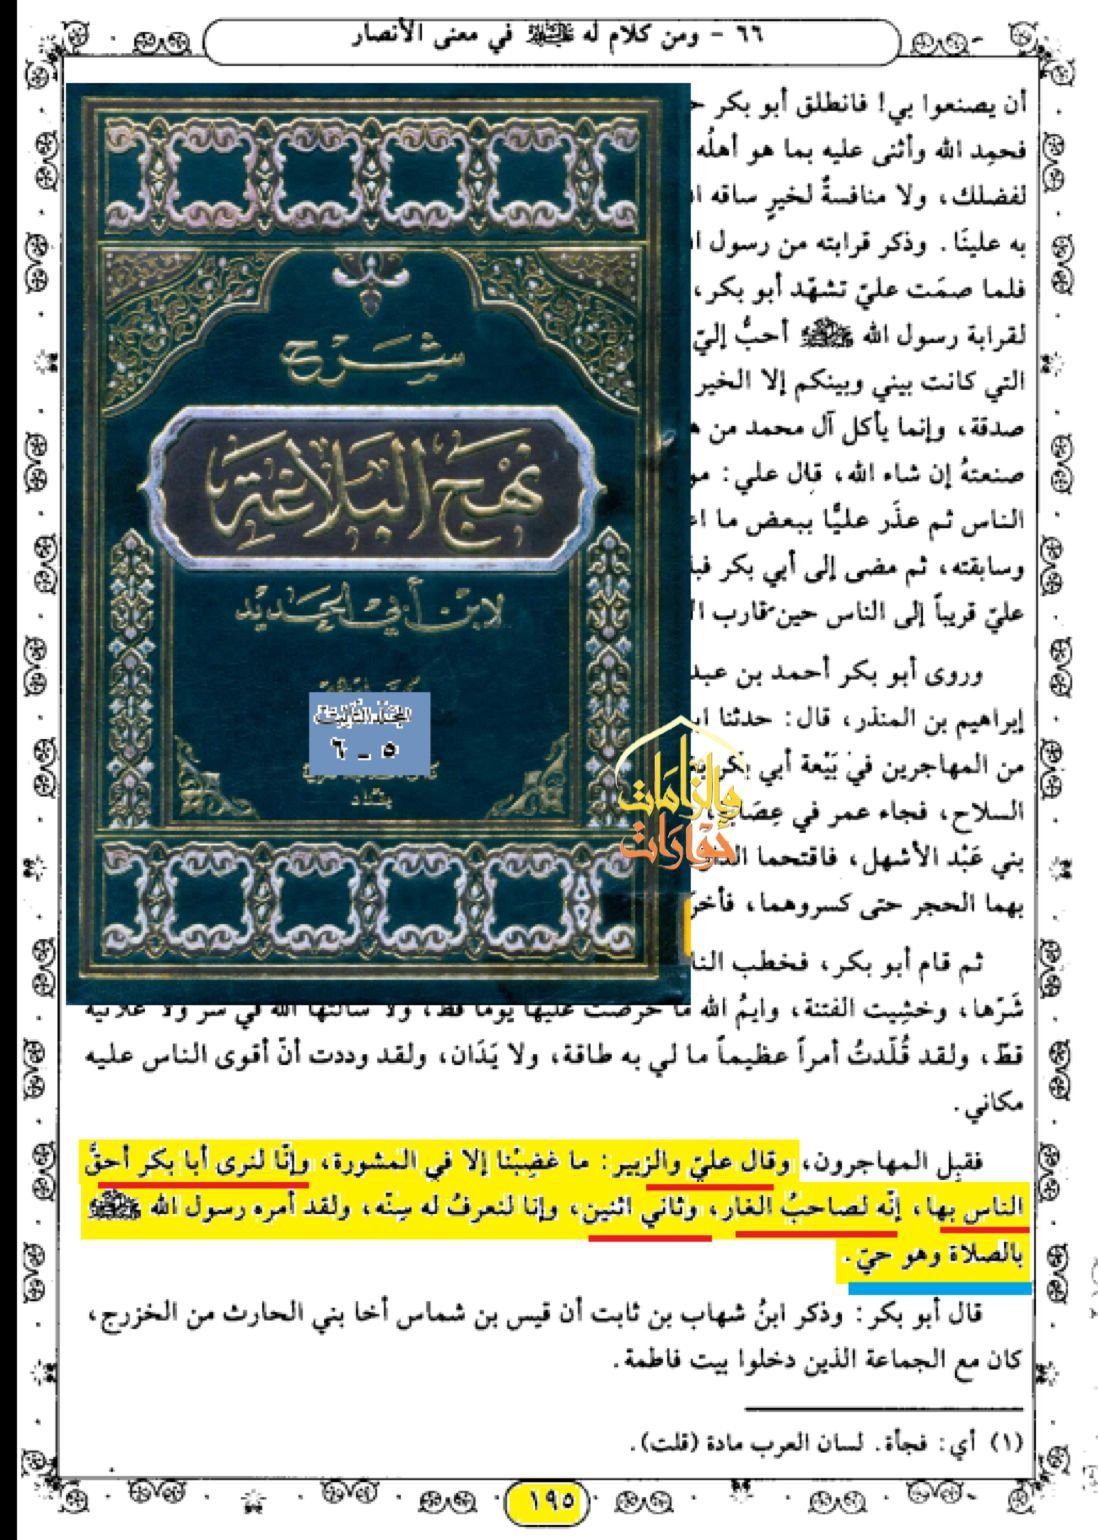 ٦٦ - ومن كلام له ﵇ في معنى الأنصار
أن يصنعوا بي! فانطلق أبو بكر
فحمِد الله وأثنى عليه بما هو أهلُه
لفضلك، ولا منافسةٌ لخيرٍ ساقه
به علينَا. وذكر قرابته من رسول
فلما صمَت عليّ تشهّد أبو بكر،
لقرابة رسول الله ﷺ أحبُّ إليّ
التي كانت بيني وبينكم إلا الخير
صدقة، وإنما يأكل آل محمد من
صنعتهُ إن شاء الله، قال علي:
الناس ثم عذَر عليًّا ببعض ما
وسابقته، ثم مضى إلى أبي بكر
عليّ قريباً إلى الناس حين قارب
وروى أبو بكر أحمد بن
إبراهيم بن المنذر، قال: حدثنا
من المهاجرين في بَيْعة أبي بكر
السلاح، فجاء عمر في
بني عَبْد الأشهل، فاقتحما
بهما الحجر حتى كسروهما،
ثم قام أبو بكر، فخطب
شَرّها، وخشِيت الفتنة، وايمُ الله ما حرصت عليها يوماً قط، ولا سألتها الله في سر ولا علانية
قطّ، ولقد قُلّدتُ أمراً عظيماً ما لي به طاقة، ولا يَدَان، ولقد وددت أنّ أقوى الناس عليه
مكاني.
فقبِل المهاجرون، وقال عليّ والزبير: ما غضِبْنا إلا في المشورة، وإنّا لنرى أبا بكر أحقُّ
الناس بها، إنّه لصاحبُ الغار، وثاني اثنين، وإنا لنعرفُ له سِنّه، ولقد أمره رسول الله ﷺ
بالصلاة وهو حيّ.
قال أبو بكر: وذكر ابنُ شهاب بن ثابت أن قيس بن شماس أخا بني الحارث من الخزرج،
كان مع الجماعة الذين دخلوا بيت فاطمة.
(١) أي: فجأة. لسان العرب مادة (فلت).
١٩٥
شرح
نهج البلاغة
لابن أبي الحديد
المجلد الثالث
٥ - ٦
بغداد
حوارات
وإلزامات